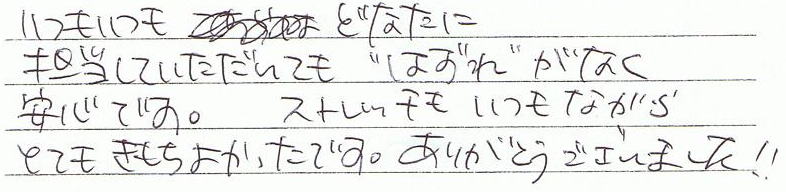 いつもいつも どなたに
担当していただいても “はずれ” がなく
安心です。 ストレッチも いつもながら
とても きもちよかったです。ありがとうございました!!